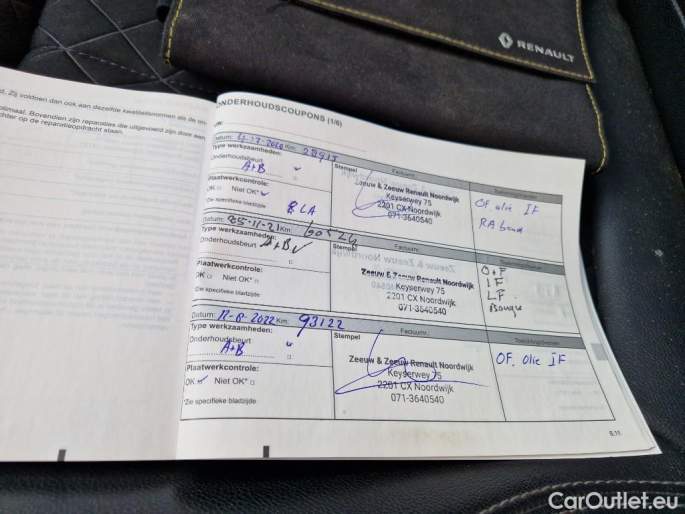 RENAULT
d. Zij voldoen dan ook aan dezelfde kwaliteitsnormen als de
optimaal. Bovendien zijn reparaties die uitgevoerd zijn door een
chter op de reparatieopdracht staan.
ONDERHOUDSCOUPONS (1/6)
Datum: Km: 28915
Type werkzaamheden:
Onderhoudsbeurt
A+B
Plaatwerkcontrole:
OK Niet OK*
*Zie specifieke bladzijde
Stempel
Factuurnr.
Zeeuw & Zeeuw Renault Noordwijk
Keyserwey 75
2201 CX Noordwijk
071-3640540
OF olie IF
Datum: 25-11-21 Km: 60524
Type werkzaamheden:
Onderhoudsbeurt
A+B
Plaatwerkcontrole:
OK Niet OK*
*Zie specifieke bladzijde
Stempel
Zeeuw & Zeeuw Renault Noordwijk
Keyserwey 75
2201 CX Noordwijk
071-3640540
O+F
IF
LF
Datum: 11-8-2022 Km: 93122
Type werkzaamheden:
Onderhoudsbeurt
A+B
Plaatwerkcontrole:
OK Niet OK*
*Zie specifieke bladzijde
Stempel
Factuurnr.
Zeeuw & Zeeuw Renault Noordwijk
Keyserwey 75
2201 CX Noordwijk
071-3640540
OF. olie IF
6.11
CarOutlet.eu